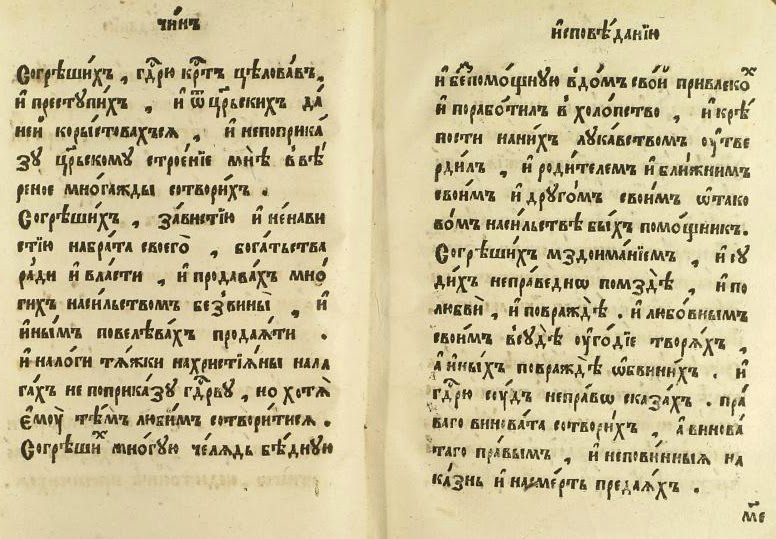 чи́нъ
Согрѣши́хъ, гдⷭ҇рю крⷭ҇тъ цѣлова́въ,
и҆ престꙋпи́хъ, и҆ ѿ црⷭ҇ьскихъ да́
ней коры́стовахъсѧ, и҆ непоприка́
зꙋ црⷭ҇ьскомꙋ строе́нїе мнѣ̀ вве́
реное мно́гажды сотвори́хъ.
Согрѣши́хъ, за́вистїю и҆ не́нави
стїю набра́та своего̀, бога́тьства
ра́ди и҆ вла́сти, и҆ продава́хъ мно́
гихъ наси́льствомъ безвины̀, и҆
и҆ны́мъ повелѣва́хъ продаѧ́ти.
и҆ нало́ги тѧ́жки нахристїѧ́ны нала
га́хъ не поприка́зꙋ гдⷭ҇рьвꙋ, но хотѧ̀
є҆моу̀ тѣ́мъ люби́мъ сотвори́тисѧ.
Согрѣши́ⷯ мно́гꙋю че́лѧдь бѣ́днꙋю
и҆сповѣ́данїю
и҆ безпо́мощнꙋю вдо́мъ сво́й привлеко́ⷯ
и҆ порабо́тилъ в хо́лопство, и҆ крѣ́
пости нани́хъ лꙋка́вствомъ оу҆тве
рди́лъ, и҆ роди́телем и҆ бли́жним
свои́м и҆ дрꙋго́м свои́м ѡ҆тако
во́м наси́льствѣ бы́хъ помо́щникъ.
Согрѣши́хъ мздоима́нїемъ, и҆ сꙋ
ди́хъ непра́веднѡ помздѣ̀, и҆ по
любвѝ, и҆повраждѣ̀. и҆ любо́внымъ
свои́мъ всꙋдѣ̀ оу҆го́дїе творѧ́хъ,
а҆ и҆ны́хъ повраждѣ̀ ѡ҆бвини́хъ. и҆
гдⷭ҇рю соу́дъ непра́вѡ сказа́хъ. пра́
ваго винова́та сотвори́хъ, а҆ винова́
таго пра́вымъ, и҆ непови́нныѧ на
ка́знь и҆ насме́рть предаѧ́хъ.